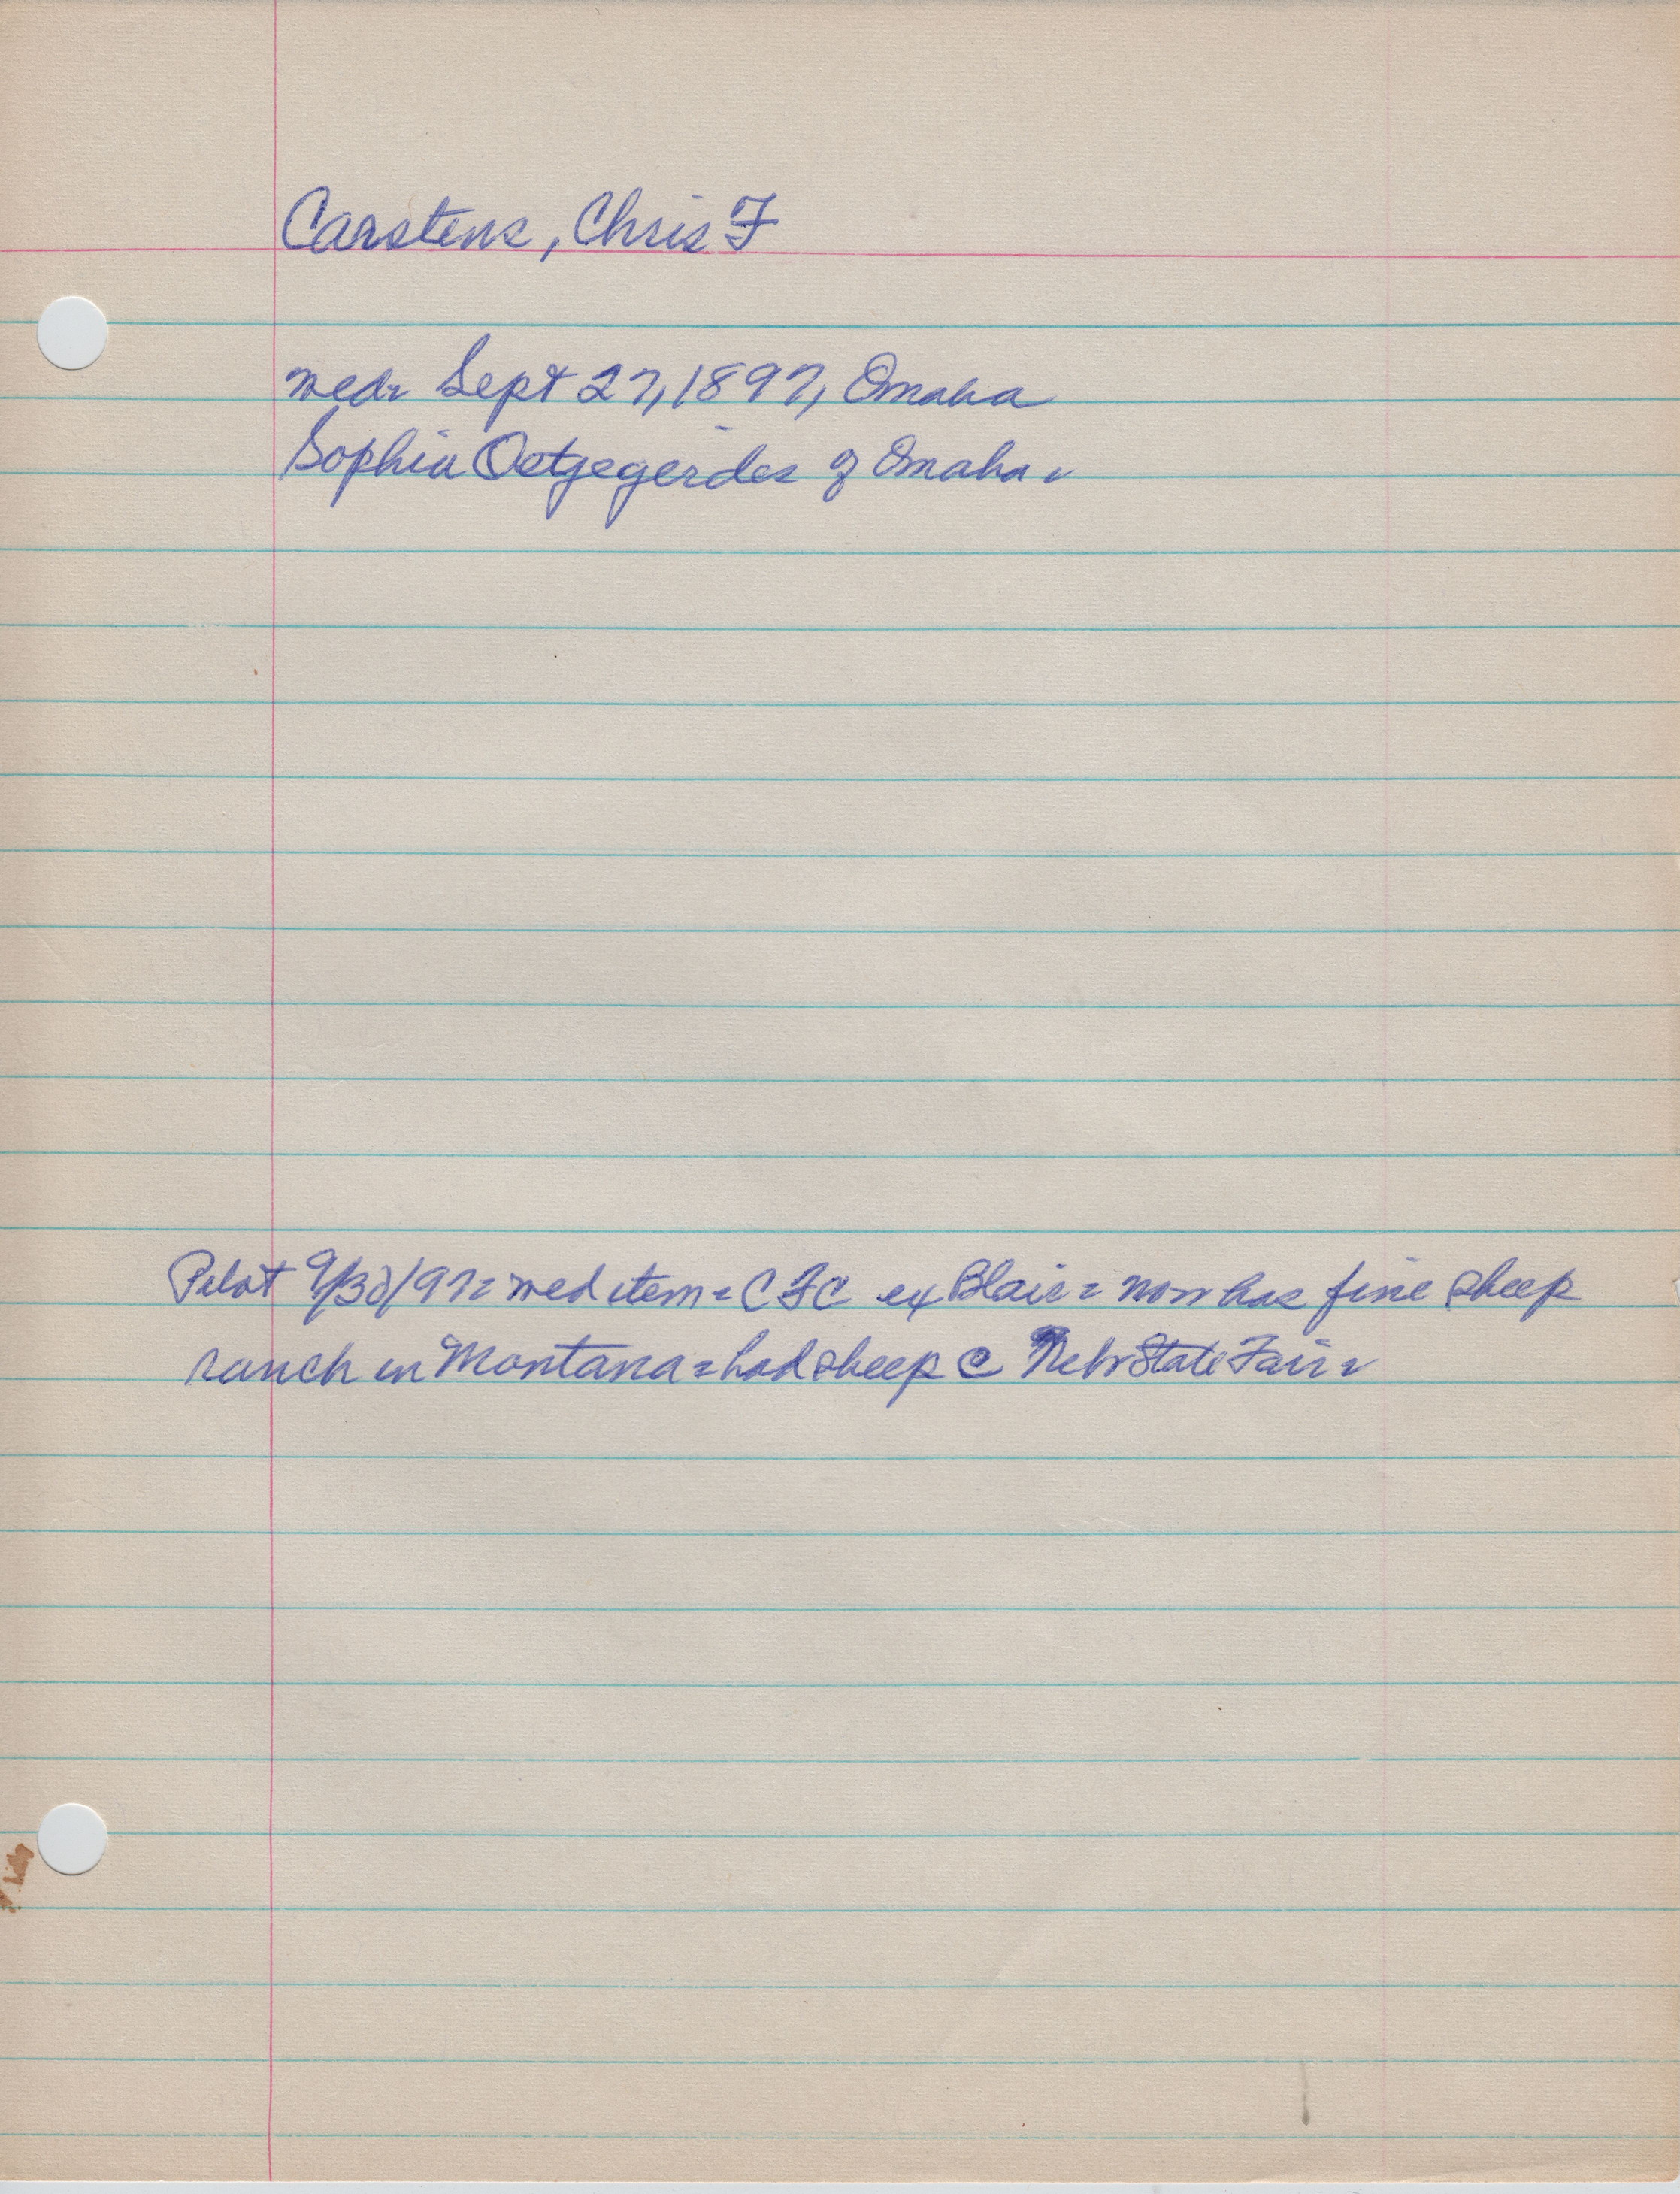 Carstens, Chris F
wed= Sept 27, 1897, Omaha
Sophia Oetjegerdes of Omaha=
Pilot 9/30/97= wed item= CFC ex Blair= now has fine sheep
ranch in Montana= had sheep @ Nebr State Fair=